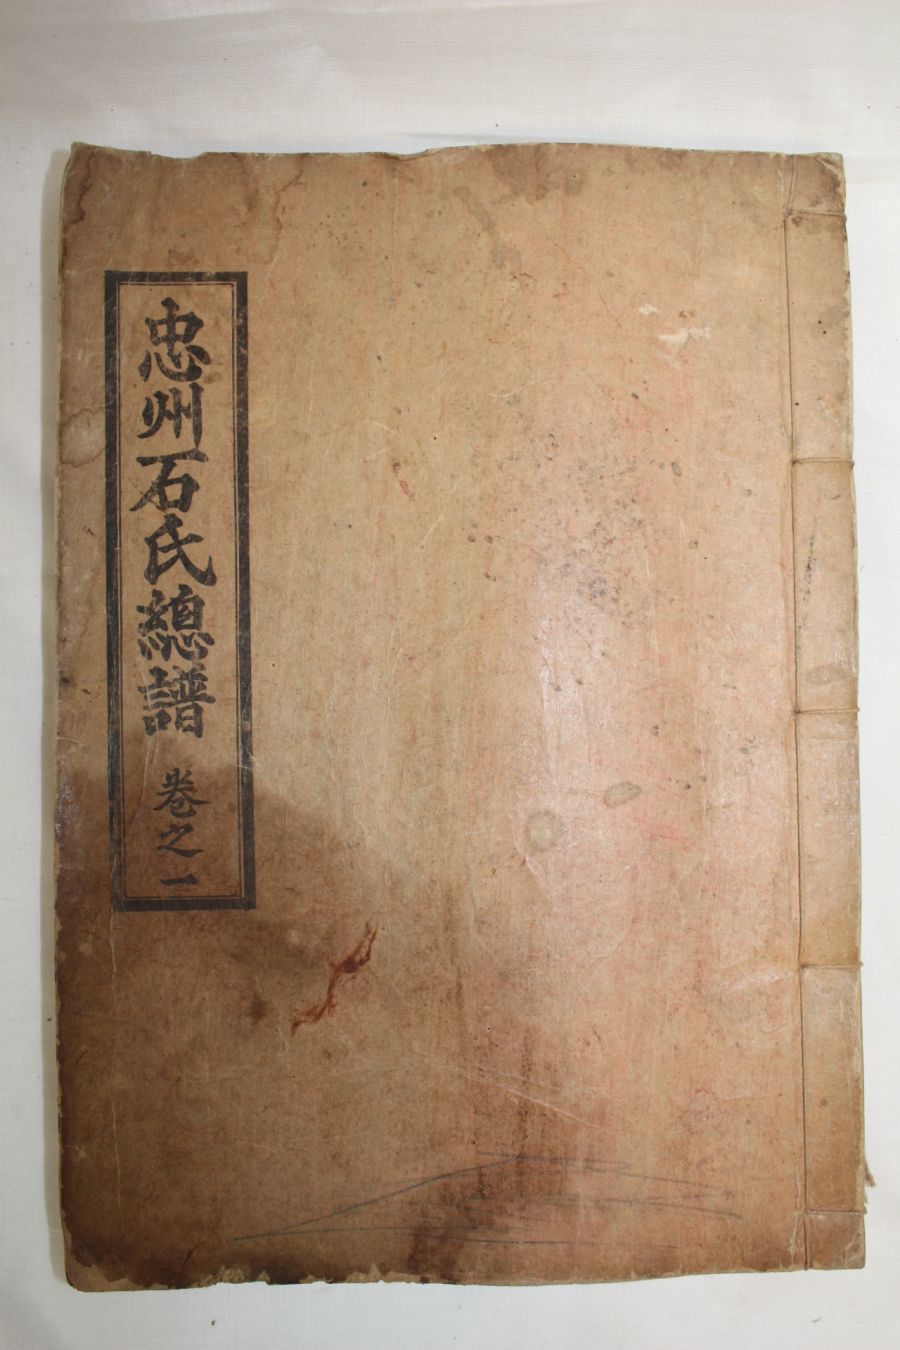 忠州石氏總譜 卷之一